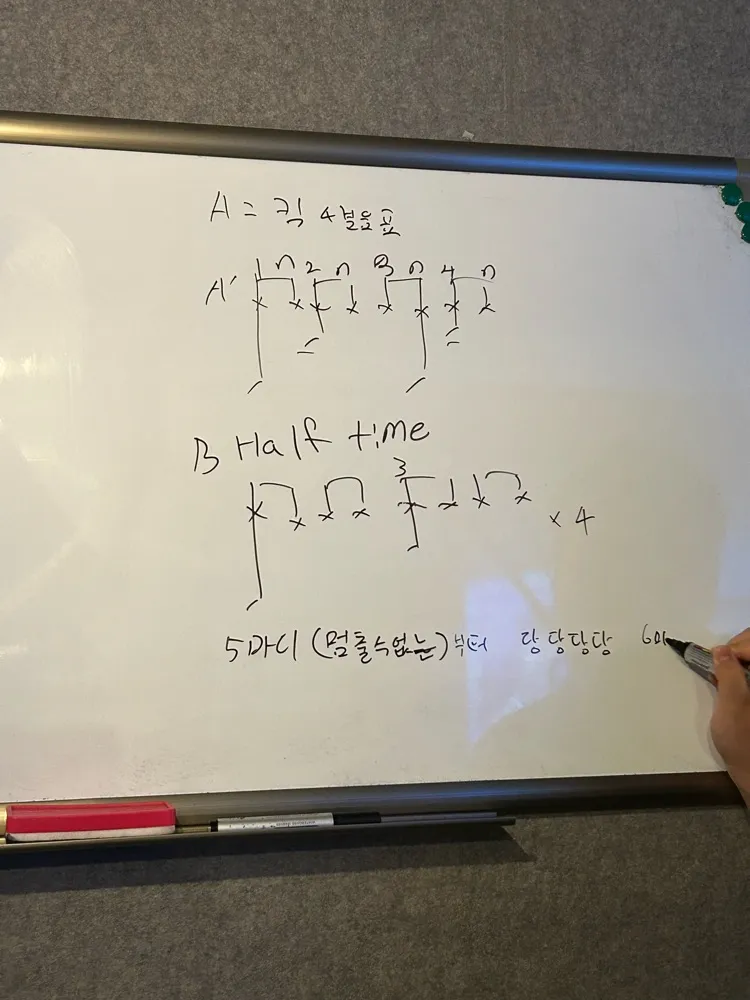 A = 킥 4분음표
1 n 2 n 3 n 4 n
A'
B Half time
3
x 4
5마디 (멈출수없는)부터 당당당당 6마